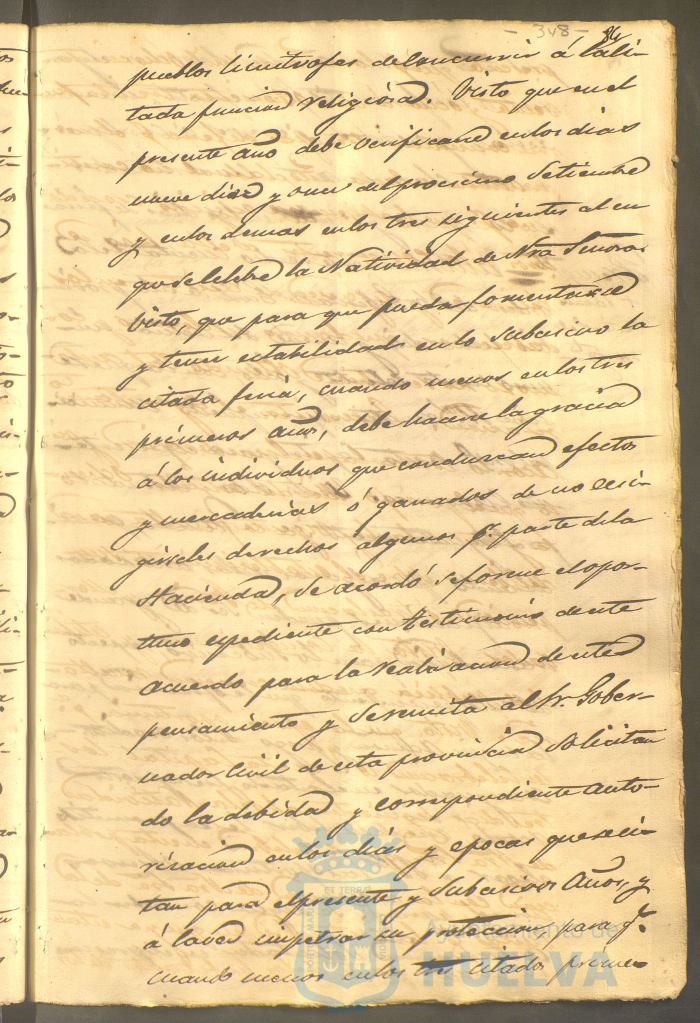 - 348 - 84
pueblos limitrofes del concurrir á la ci-
tada funcion religiosa. Visto que en el
presente año debe verificarse en los dias
nueve diez y once del procsimo Setiembre
y en los demas en los tres siguientes al en
que se celebre la Natividad de Nra Señora.
Visto, que para que pueda fomentarse
y tener estabilidad en lo subcesivo la
citada feria, cuando menos en los tres
primeros años, debe hacerse la gracia
á los individuos que conduzcan efectos
y mercaderias ó ganados de no ecsi-
girseles derechos algunos pr. parte de la
Hacienda, se acordó se forme el opor-
tuno espediente con testimonio de este
acuerdo para la realizacion de este
pensamiento y se remita al Sr. Gober-
nador Civil de esta provincia solicitan
do la debida y correspondiente auto-
rizacion en los dias y epocas que se ci-
tan para el presente y subcesivos años, y
á la vez impetrar su proteccion para qe.
cuando menos en los tres citados prime-
ET TERRÆ
Ayuntamiento de
HUELVA